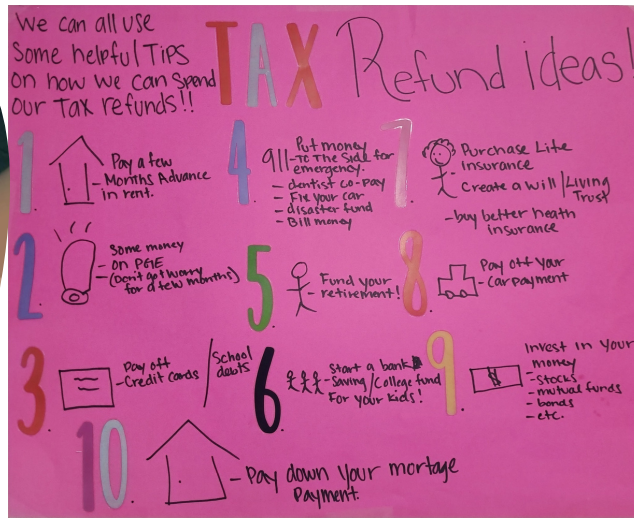 We can all use
Some helpful Tips
on how we can spend
our Tax refunds!!
TAX Refund ideas!
1.
Pay a few
- Months Advance
in rent.
2.
Some money
- on PG&E
- (Don't got worry
for a few months)
3.
Pay off
- Credit cards / School
debts
4.
Put money
911 - To The Side for
emergency.
- dentist co-pay
- Fix your car
- disaster fund
- Bill money
5.
Fund your
- retirement!
6.
Start a bank
- Saving/College fund
For your kids!
7.
Purchase Life
insurance
- Create a will / Living
Trust
- buy better heath
insurance
8.
Pay off your
- Car payment
9.
Invest in your
- money
- stocks
- mutual funds
- bonds
- etc.
$
10.
- Pay down your mortage
Payment.